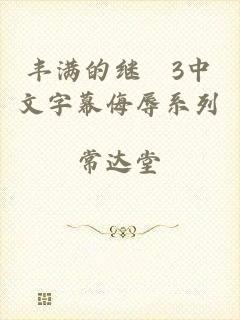 丰满的继 3中
文字幕侮辱系列
常达堂